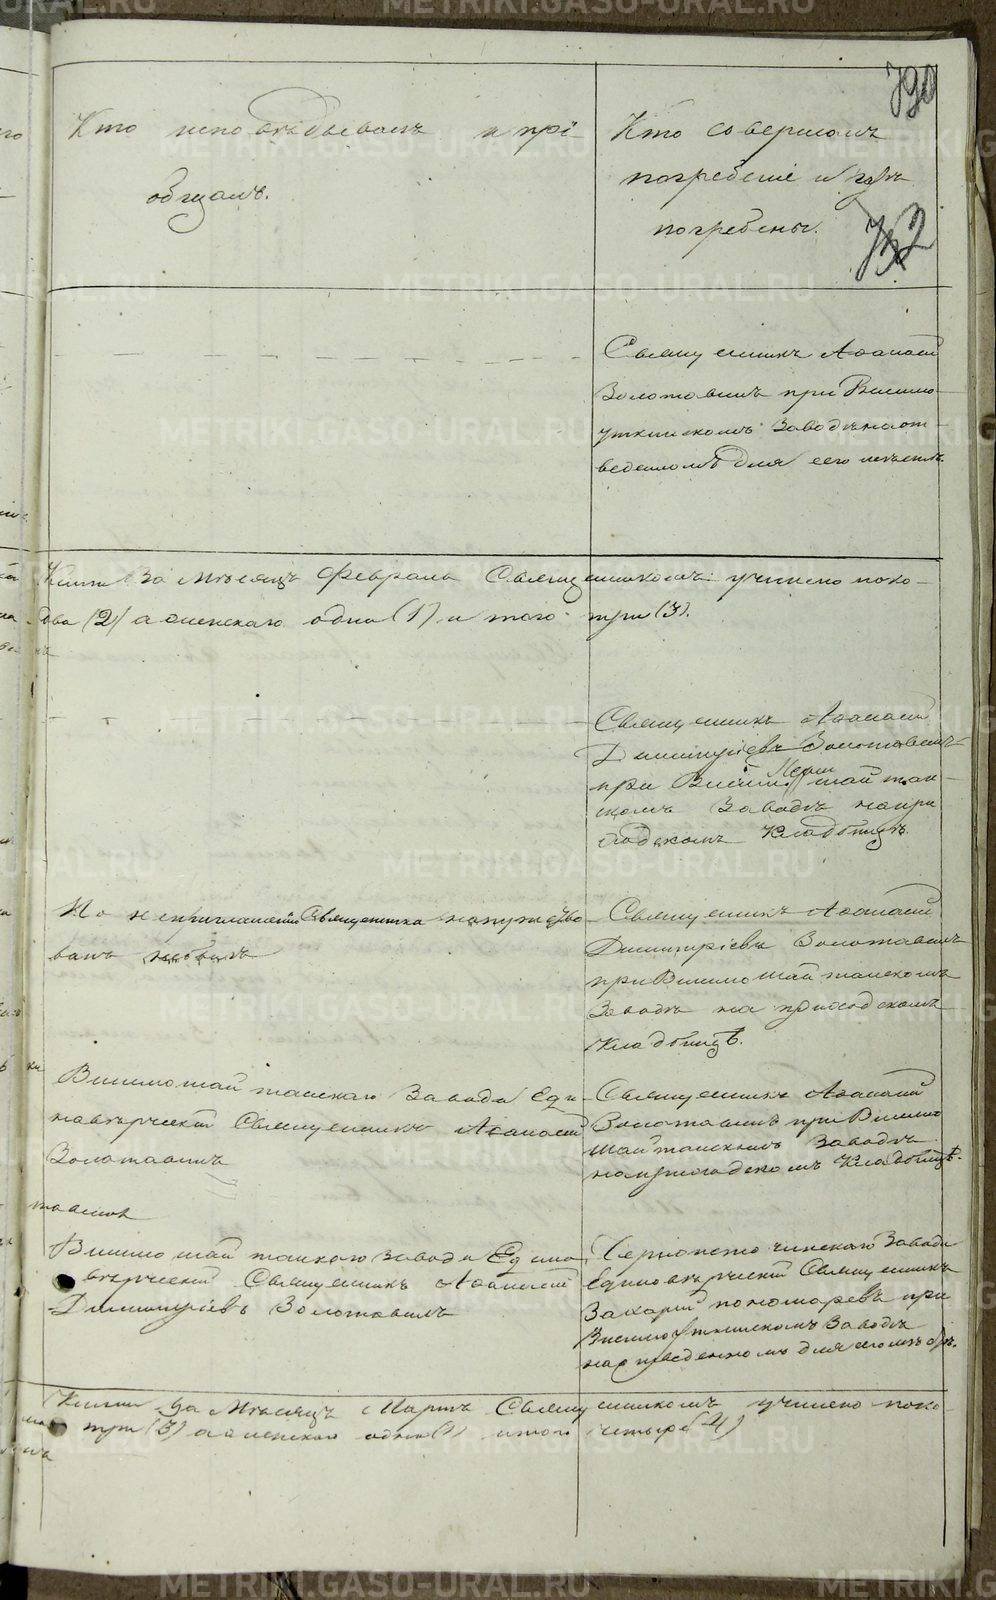 790
Кто исповѣдывалъ и прі
общалъ.
Кто совершалъ
погребеніе и гдѣ
погребены.
732
Священникъ Афанасій
Золотавинъ при Висимо
уткинскомъ Заводѣ на от-
веденномъ для сего мѣстѣ.
За Мѣсяцъ Февраль Священникомъ учинено
два (2) а женскаго одна (1) и того три (3).
Священникъ Афанасій
Димитріевъ Золотавинъ
при Висимо шайтан-
скомъ Заводѣ на при
ходскомъ Кладбищѣ
По неприглашенію Священника напутство
ванъ небылъ
Священникъ Афанасій
Димитріевъ Золотавинъ
при Висимо шайтанскомъ
Заводѣ на приходскомъ
Кладбищѣ.
Висимошайтанскаго Завода Еди
новѣрческій Священникъ Афанасій
Золотавинъ
Священникъ Афанасій
Золотавинъ при Висимо
шайтанскомъ Заводѣ
на приходскомъ Кладбищѣ.
Висимо шайтанскаго Завода Едино
вѣрческій Священникъ Афанасій
Димитріевъ Золотавинъ
Черноисточинскаго Завода
Единовѣрческій Священникъ
Захарій Пономаревъ при
Висимоуткинскомъ Заводѣ
на отведенномъ для сего мѣстѣ.
За Мѣсяцъ Мартъ Священникомъ учинено
три (3) а женскаго одна (1) итого четыре (4)
METRIKI.GASO-URAL.RU